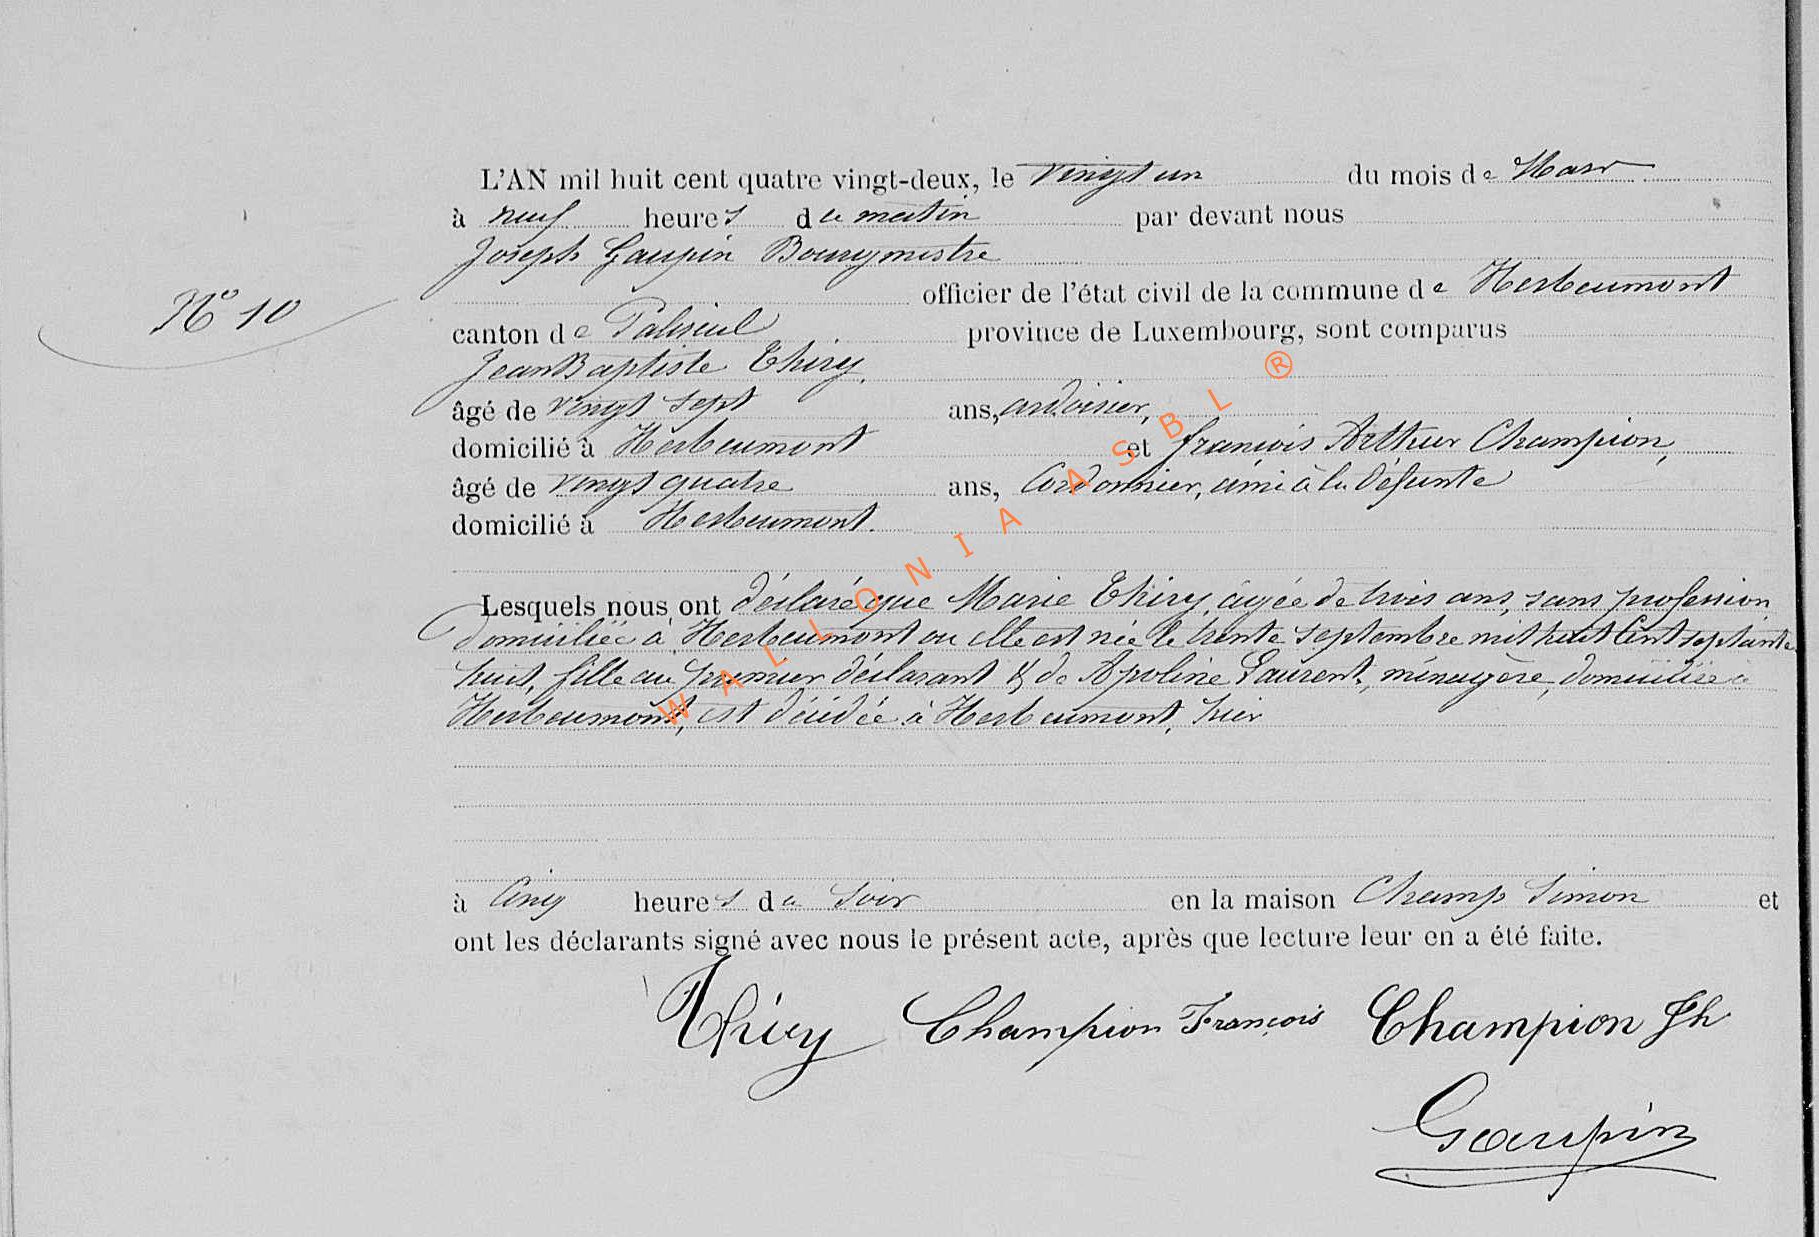 L'AN mil huit cent quatre vingt-deux, le vingt un du mois de Mars
à neuf heures du matin par devant nous
Joseph Gaupin Bourgmestre
officier de l'état civil de la commune de Herbeumont
N° 10
canton de Paliseul province de Luxembourg, sont comparus
Jean Baptiste Thiry,
âgé de vingt sept ans, ardoisier,
domicilié à Herbeumont et françois Arthur Champion,
âgé de vingt quatre ans, Cordonnier, ami à la défunte
domicilié à Herbeumont.
Lesquels nous ont déclaré que Marie Thiry, âgée de trois ans, sans profession
domiciliée à Herbeumont ou elle est née le trente septembre mil huit Cent septante
huit, fille au premier déclarant & de Apoline Laurent, ménagère, domiciliée à
Herbeumont, est décédée à Herbeumont, hier
à Cinq heures du Soir en la maison Champ Simon et
ont les déclarants signé avec nous le présent acte, après que lecture leur en a été faite.
Thiry Champion François Champion Jh
Gaupin
WALLONIA ASBL ®